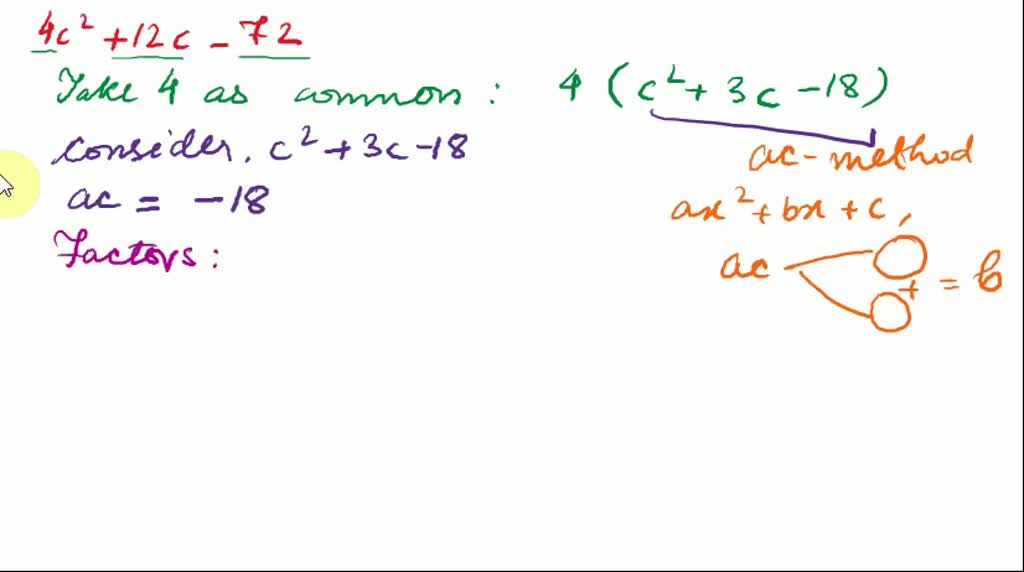 4c² + 12c - 72
Take 4 as common : 4 (c² + 3c - 18)
consider, c² + 3c - 18
ac - method
ac = -18
ax² + bx + c,
Factors :
ac + = b